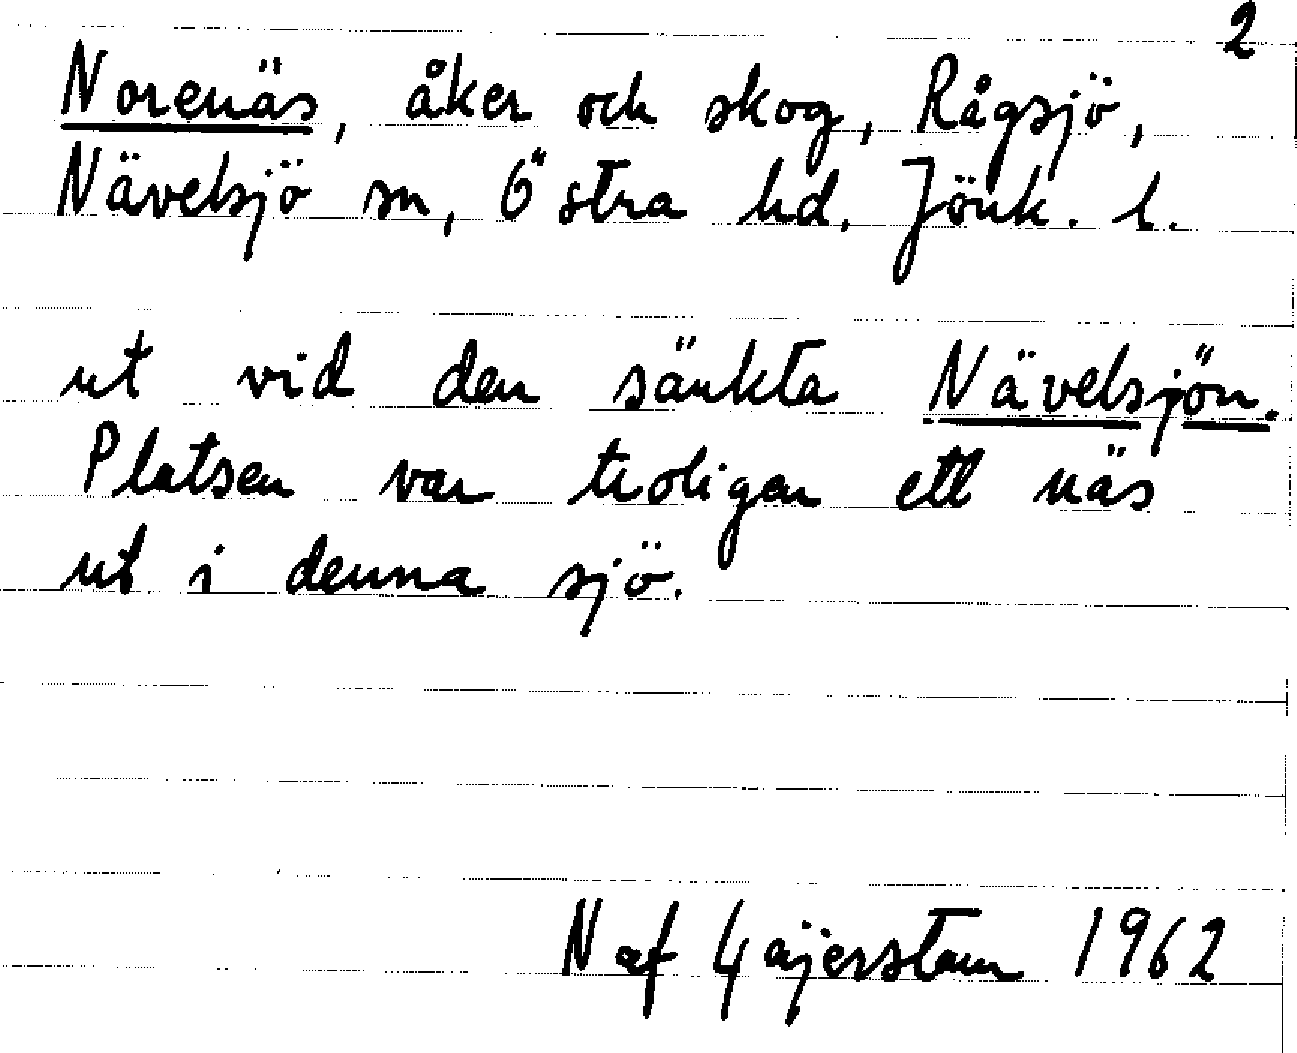 2
Norenäs, åker och skog, Rågsjö,
Nävelsjö sn, Östra hd. Jönk. l.
ut vid den sänkta Nävelsjön.
Platsen var troligen ett näs
ut i denna sjö.
N af Geijerstam 1962